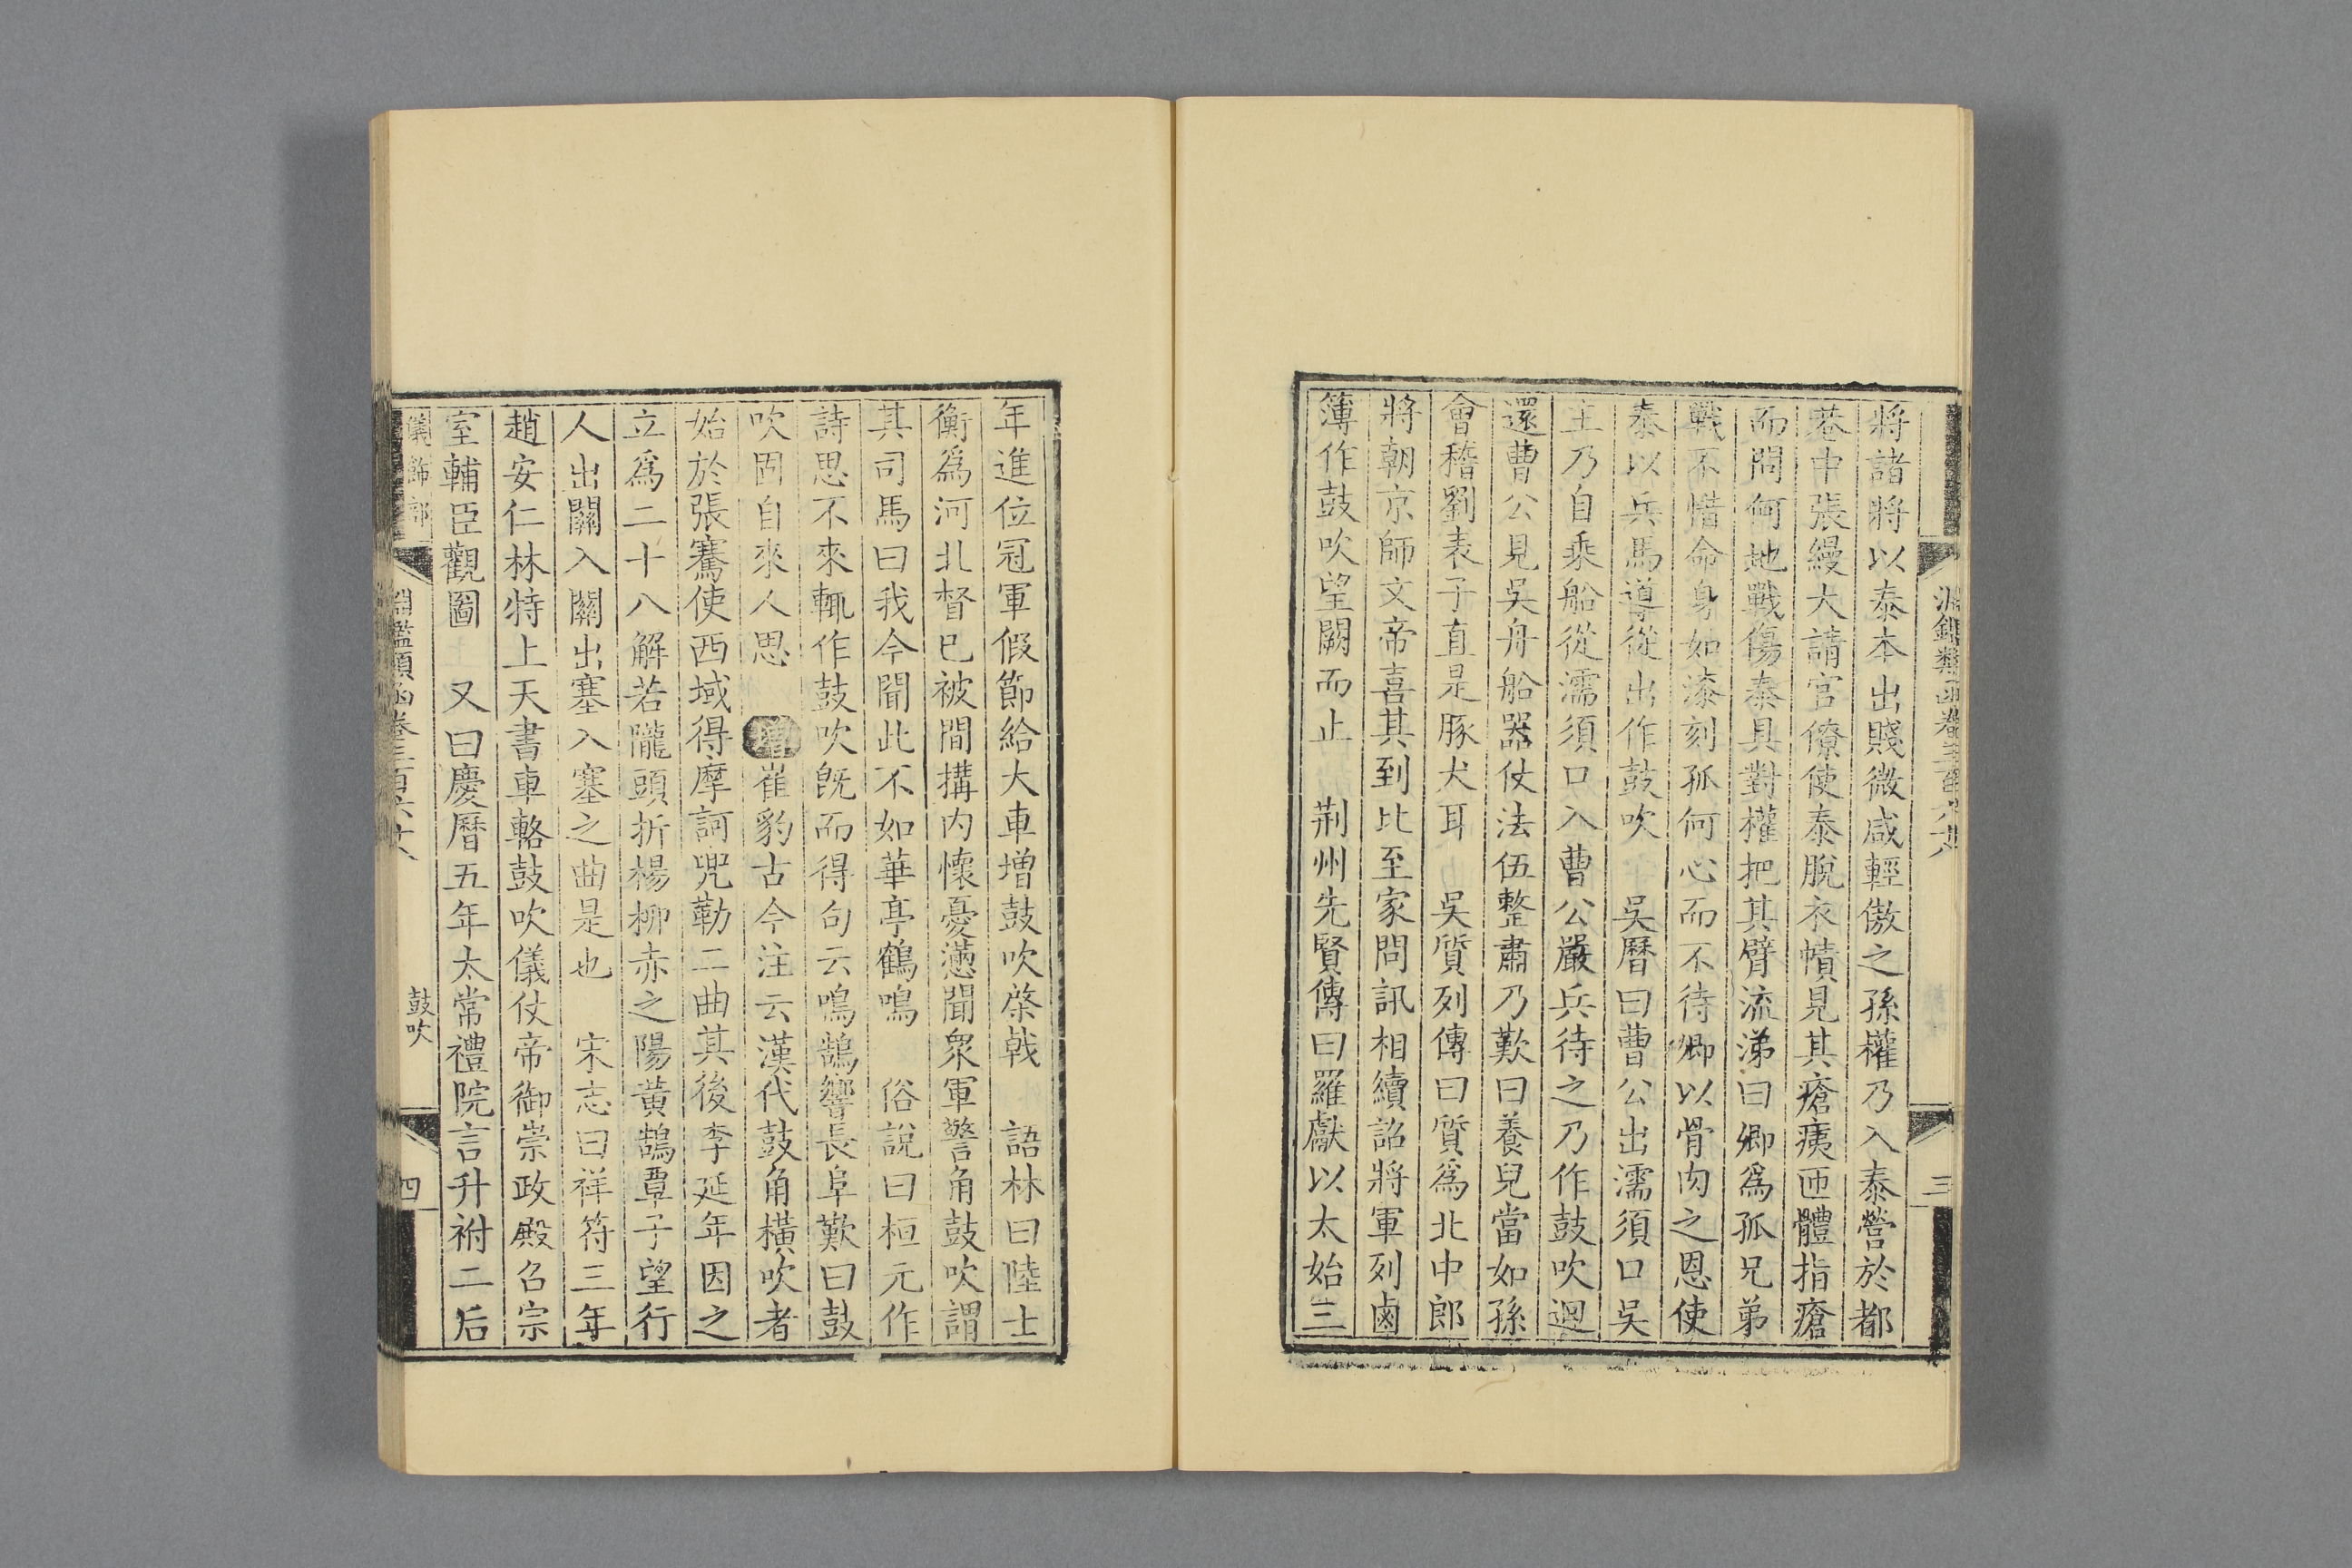 將諸將以泰本出賤微咸輕傲之孫權乃入泰營於都
巷中張縵大請官僚使泰脫衣幘見其瘡痍匝體指瘡
而問何地戰傷泰具對權把其臂流涕曰卿爲孤兄弟
戰不惜命身如漆刻孤何心而不待卿以骨肉之恩使
泰以兵馬導從出作鼓吹　吳曆曰曹公出濡須口吳
主乃自乘船從濡須口入曹公嚴兵待之乃作鼓吹迴
還曹公見吳舟船器仗法伍整肅乃歎曰養兒當如孫
會稽劉表子直是豚犬耳　吳質列傳曰質爲北中郎
將朝京師文帝喜其到比至家問訊相續詔將軍列鹵
簿作鼓吹望闕而止　荆州先賢傳曰羅獻以太始三
三
年進位冠軍假節給大車増鼓吹棨戟　語林曰陸士
衡爲河北督已被間搆內懷憂懣聞衆軍警角鼓吹謂
其司馬曰我今聞此不如華亭鶴鳴　俗說曰桓元作
詩思不來輒作鼓吹旣而得句云鳴鵠響長阜歎曰鼓
吹固自來人思　增崔豹古今注云漢代鼓角橫吹者
始於張騫使西域得摩訶兜勒二曲其後李延年因之
立爲二十八解若隴頭折楊柳赤之陽黃鵠覃子望行
人出關入關出塞入塞之曲是也　宋志曰祥符三年
趙安仁林特上天書車輅鼓吹儀仗帝御崇政殿召宗
室輔臣觀圖　又曰慶曆五年太常禮院言升祔二后
儀飾部
鼓吹
四